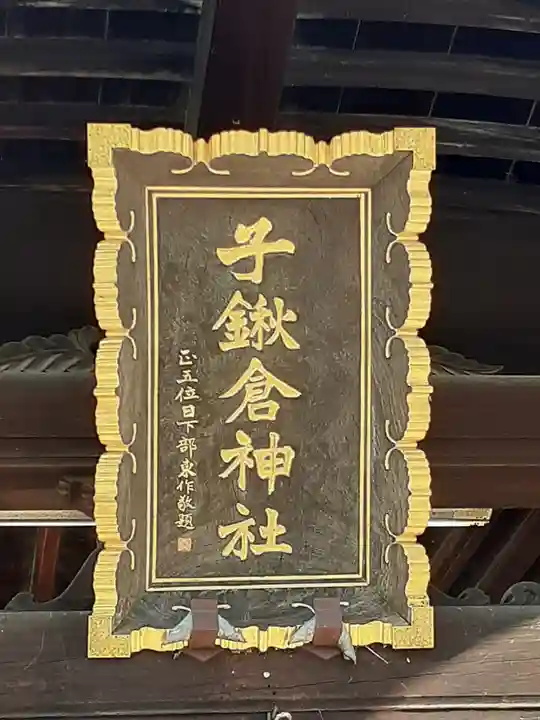 子鍬倉神社
正五位日下部東作敬題